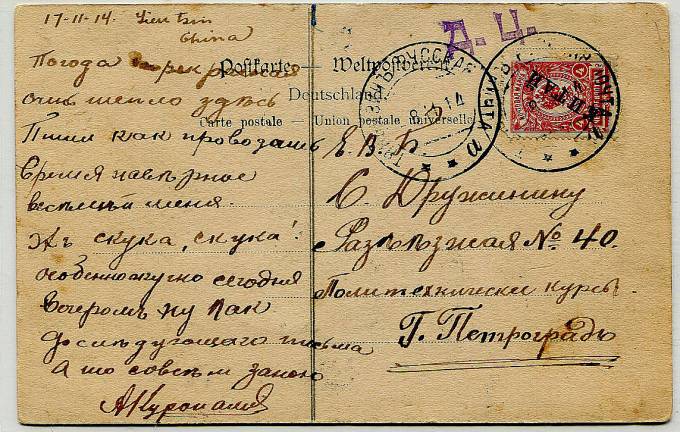 17-11-14. Tientsin
China
Погода прекрасная
очень тепло здѣсь
Пиши как проводишь
время навѣрное
веселѣй меня.
Эхъ скука, скука!
особенно скучно сегодня
вечеромъ ну пак
до слѣдующаго письма
а то совсѣм заною
Д. Ц.
Postkarte — Weltpostverein
Deutschland
Carte postale — Union postale universelle
РУССКАЯ
ПОЧТА
8 11 14
КИТАЙ
Е. В. Б.
С. Дружинину
Разъѣзжая № 40.
Политехнически курсы
Г. Петроградъ